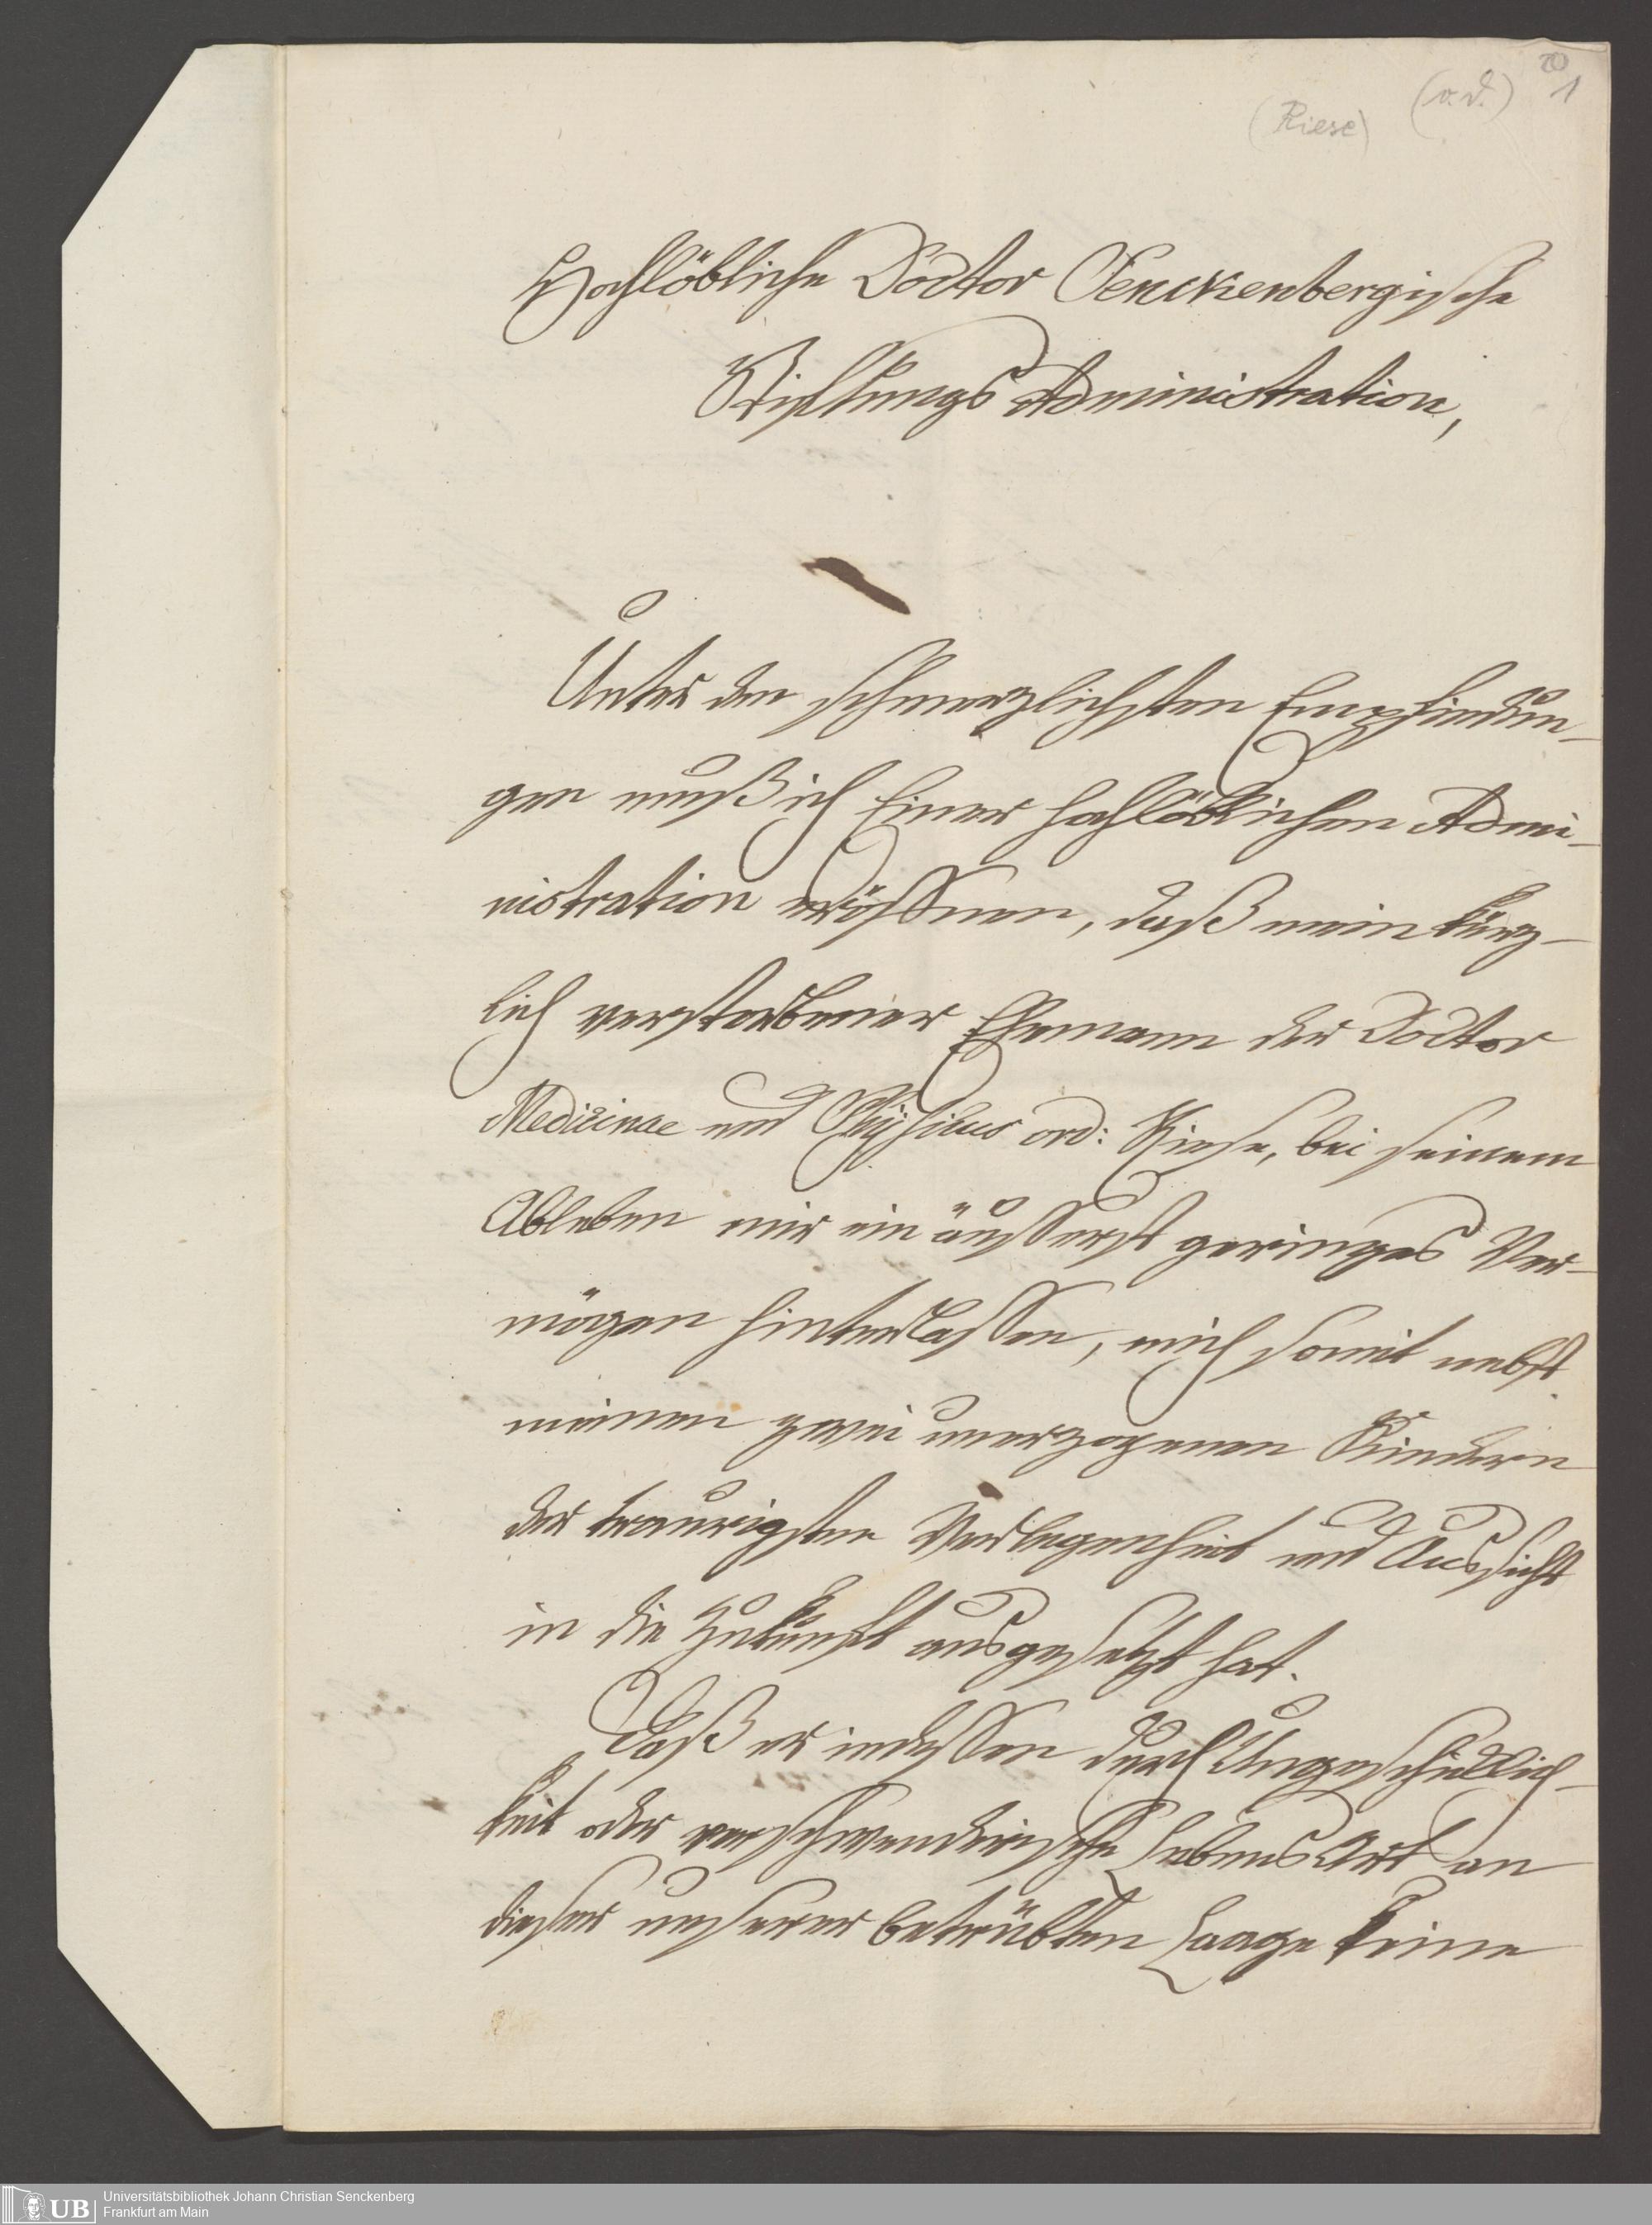 20
(o. d.) 1
(Riese)
Hochlöbliche Doctor Senckenbergische
Stiftungs Administration,
Unter den schmerzlichsten Empfindun-
gen muß ich Einer hochlöblichen Admi-
nistration eröffnen, daß mein kürz-
lich verstorbener Ehemann der Doctor
Medizinae und Physicus ord: Riese, bei seinem
Ableben mir ein äusserst geringes Ver-
mögen hinterlassen, mich somit nebst
meinen zwei unerzogenen Kindern
der traurigsten Verlegenheit und Aussicht
in die Zukunft ausgesetzt hat.
Daß er indessen durch Ungeschicklich-
keit oder verschwenderische Lebens Art an
dieser unserer betrübten Laage keine
UB
Universitätsbibliothek Johann Christian Senckenberg
Frankfurt am Main